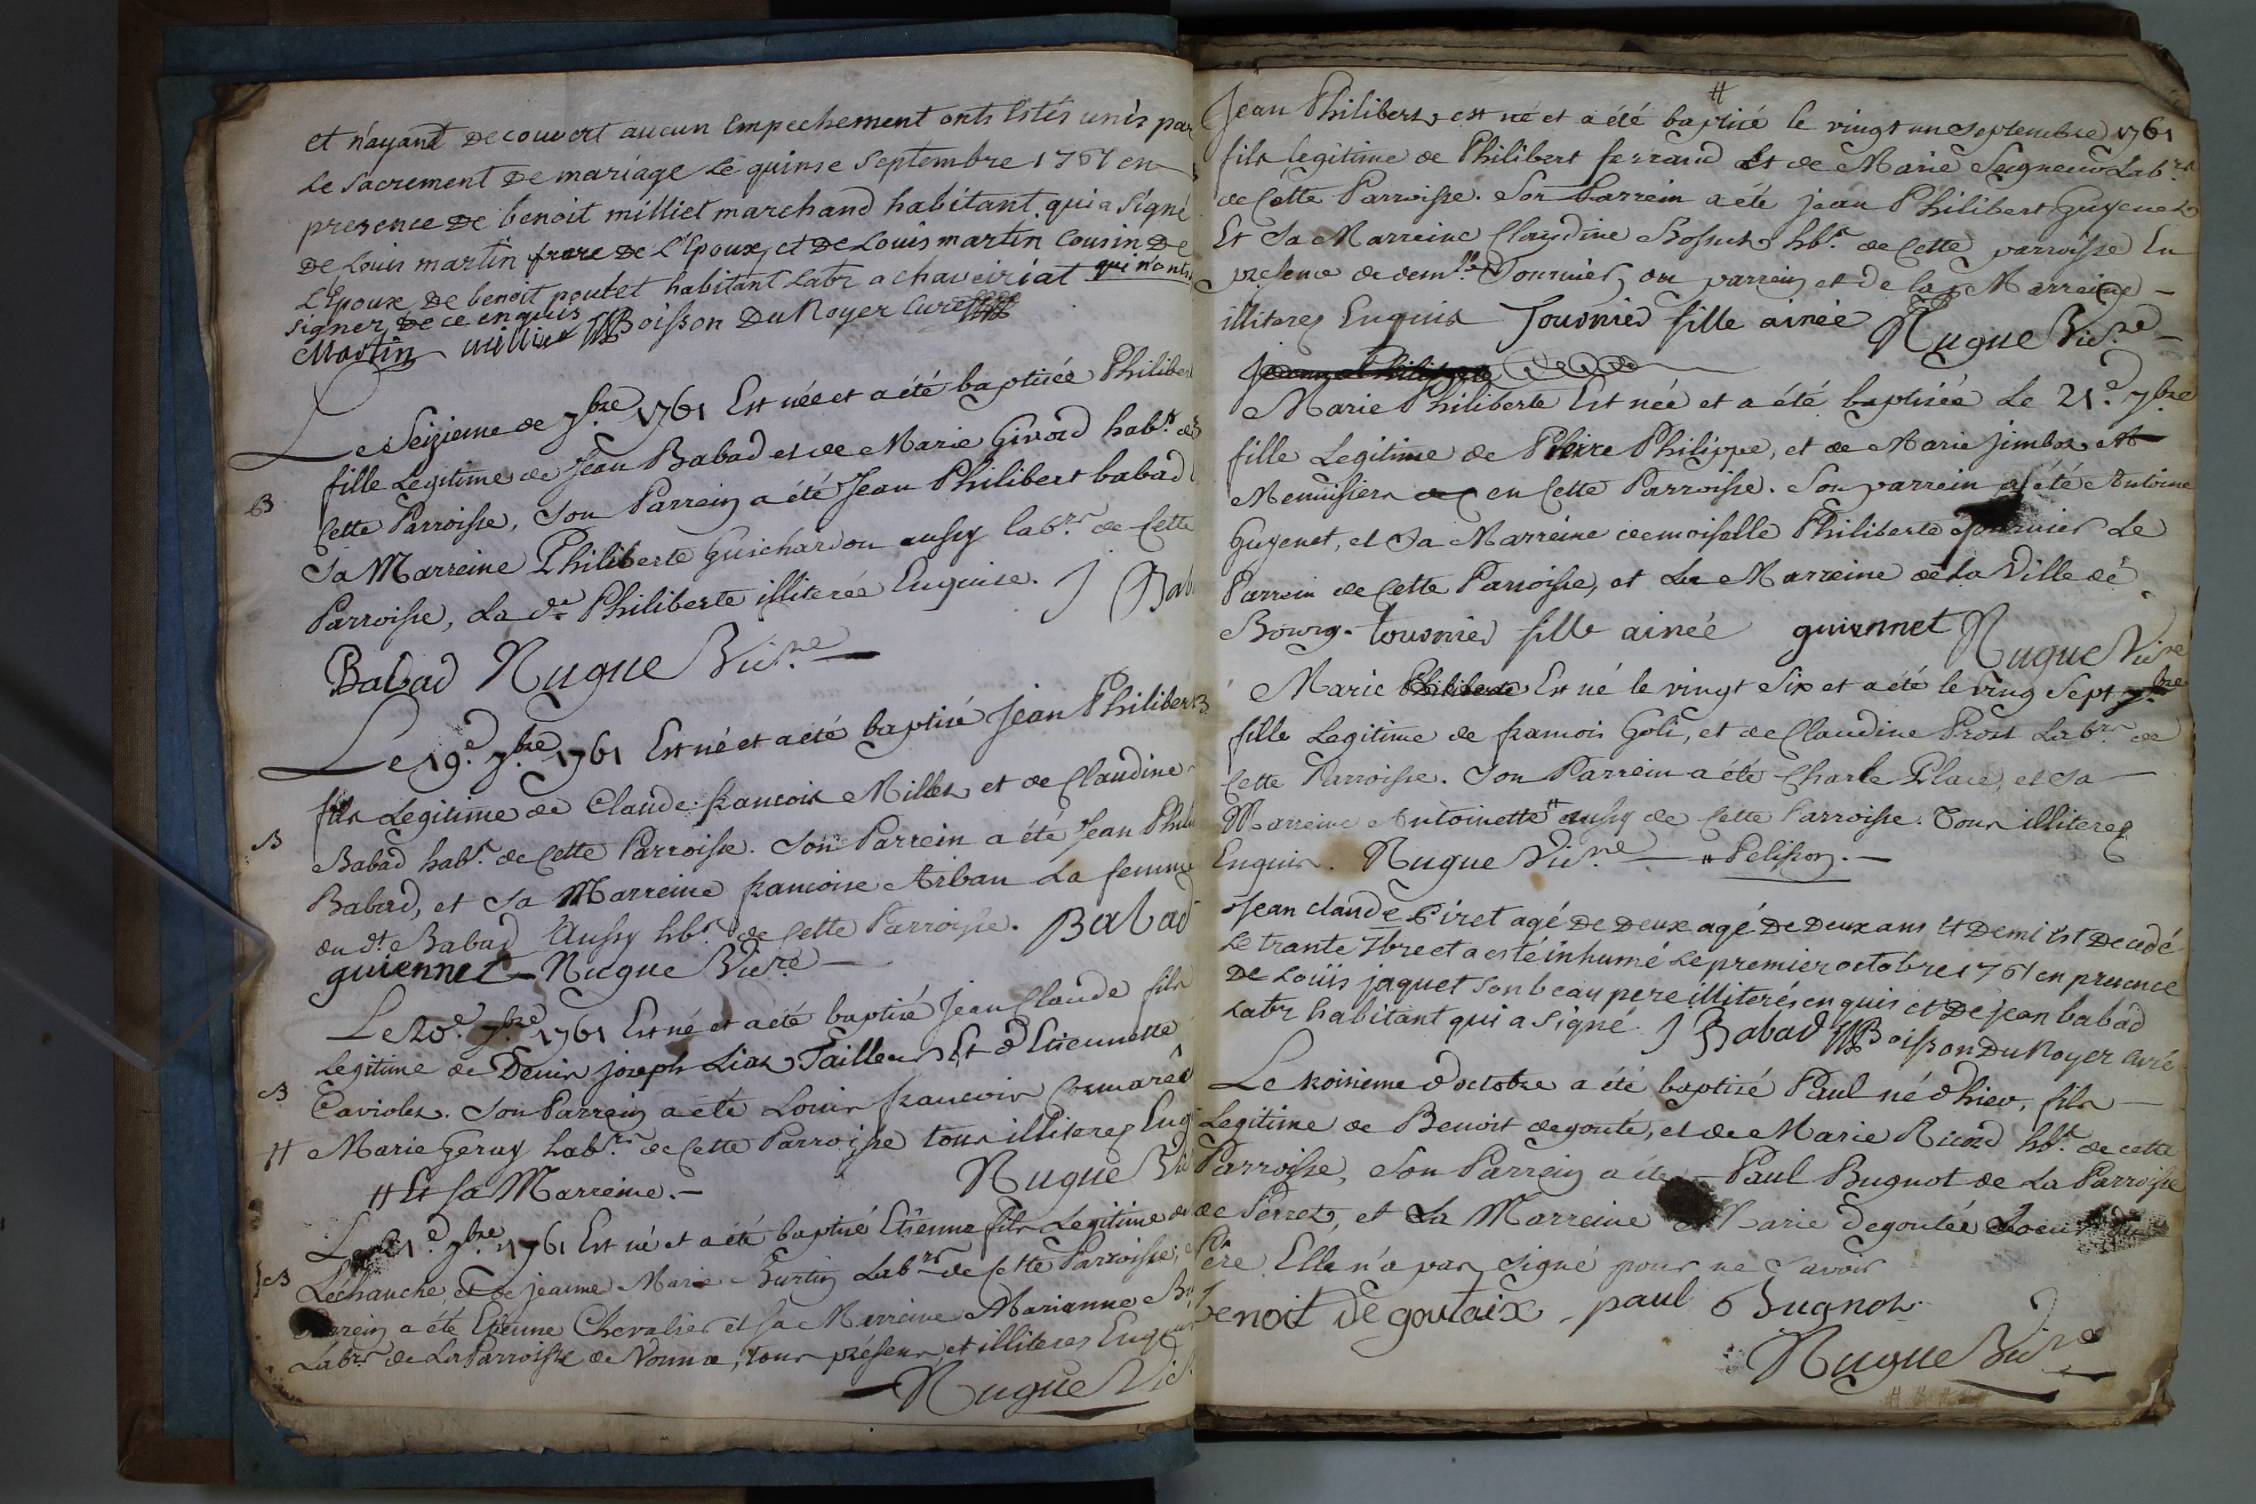 et n'ayant decouvert aucun empechement onts Estés unis par
le sacrement de mariage le quinse septembre 1761 en
presence de benoit milliet marchand habitant qui a signé
de louis martin frere de l'Epoux, et de louis martin cousin de
l'Epoux de benoit poutet habitant labr a chaveiriat qui n'onts
signer de ce enquis
Martin milliet Boisson Du Noyer curé
Le Seizieme de 7.bre 1761 Est née et a été baptisée Philiber
fille Legitime de Jean Babad et de Marie Girard hab.ts de
B
Cette Parroisse, Son Parrein a été Jean Philibert babad
Sa Marreine Philiberte Guichardon aussy lab.rs de Cette
Parroisse, La d.e Philiberte illiterée Enquise. J Bab
Babad Nugue Vic.re
Le 19.e 7.bre 1761 Est né et a été baptisé Jean Philibert
fils Legitime de Claude francois Millet et de Claudine
B
Babad hab.s de Cette Parroisse. Son Parrein a été Jean Phili
Babad, et Sa Marreine francoise Arban La femme
du d.t Babad Aussy hb.s de Cette Parroisse. Babad
guiennet Nugue Vic.re
Le 20.e 7.bre 1761 Est né et a été baptisé Jean Claude fils
Legitime de Denis joseph Lias Tailleur Et d'Etiennette
B
Caviolet. Son Parrein a été Louis francois
# Marie Geray hab.rs de Cette Parroisse tous illiteres Enq
Nugue Vic
# Et sa Marreine.
Le 21.e 7.bre 1761 Est né et a été baptisé Etienne fils Legitime de
B
Léchanche, et de jeanne Marie Burtin Lab.rs de Cette Parroisse,
Parrein a été Etienne Chevalier et sa Marreine Marianne
Lab.rs de La Parroisse de Vonna, tous présens et illiteres Enquis
Nugue Vic
#
Jean Philibert est né et a été baptisé le vingt un Septembre 1761
fils legitime de Philibert ferrand Et de Marie Seigneur Lab.rs
de Cette Parroisse. Son Parrein a été jean Philibert Guyenet
Et Sa Marreine Claudine Bossut hb.s de Cette parroisse En
presence de dem.lle Tournier, du parrein et de la Marreine
illiteres Enquis Tournier fille ainée Nugue Vic.re
Marie Philiberte Est née et a été baptisée Le 21.e 7.bre
fille Legitime de Pierre Philippe, et de Marie jimbot
Menuisiers en Cette Parroisse. Son parrein a été Antoine
Guyenet, et Sa Marreine demoiselle Philiberte Tournier Le
Parrein de Cette Parroisse, et La Marreine de La Ville de
Bourg. tournier fille ainée guiennet Nugue Vic.re
Marie Philiberte Est né le vingt Six et a été le ving Sept 7.bre
fille Legitime de francois Goli, et de Claudine Prost Lab.rs de
Cette Parroisse. Son Parrein a été Charle Place, et Sa
Marreine Antoinette # aussy de Cette Parroisse. Tous illiteres
Enquis. Nugue Vic.re # Pelisson.
Jean claude Piret agé de deux agé de deux ans et demi Est decedé
Le trante 7bre et a esté inhumé le premier octobre 1761 en presence
De Loüis jaquet son beau pere illiterés enquis et De jean babad
Labr habitant qui a signé. J Babad Boisson Du Noyer curé
Le troisieme d'octobre a été baptisé Paul né d'hier, fils
Legitime de Benoit degouté, et de Marie Ricard hb.s de cette
Parroisse, Son Parrein a été Paul Bugnot de La Parroisse
de Perret, et La Marreine Marie degoutée Soeur du
Père Elle n'a pas signé pour ne Savoir
benoit de goutaix paul Bugnot
Nugue Vic.re